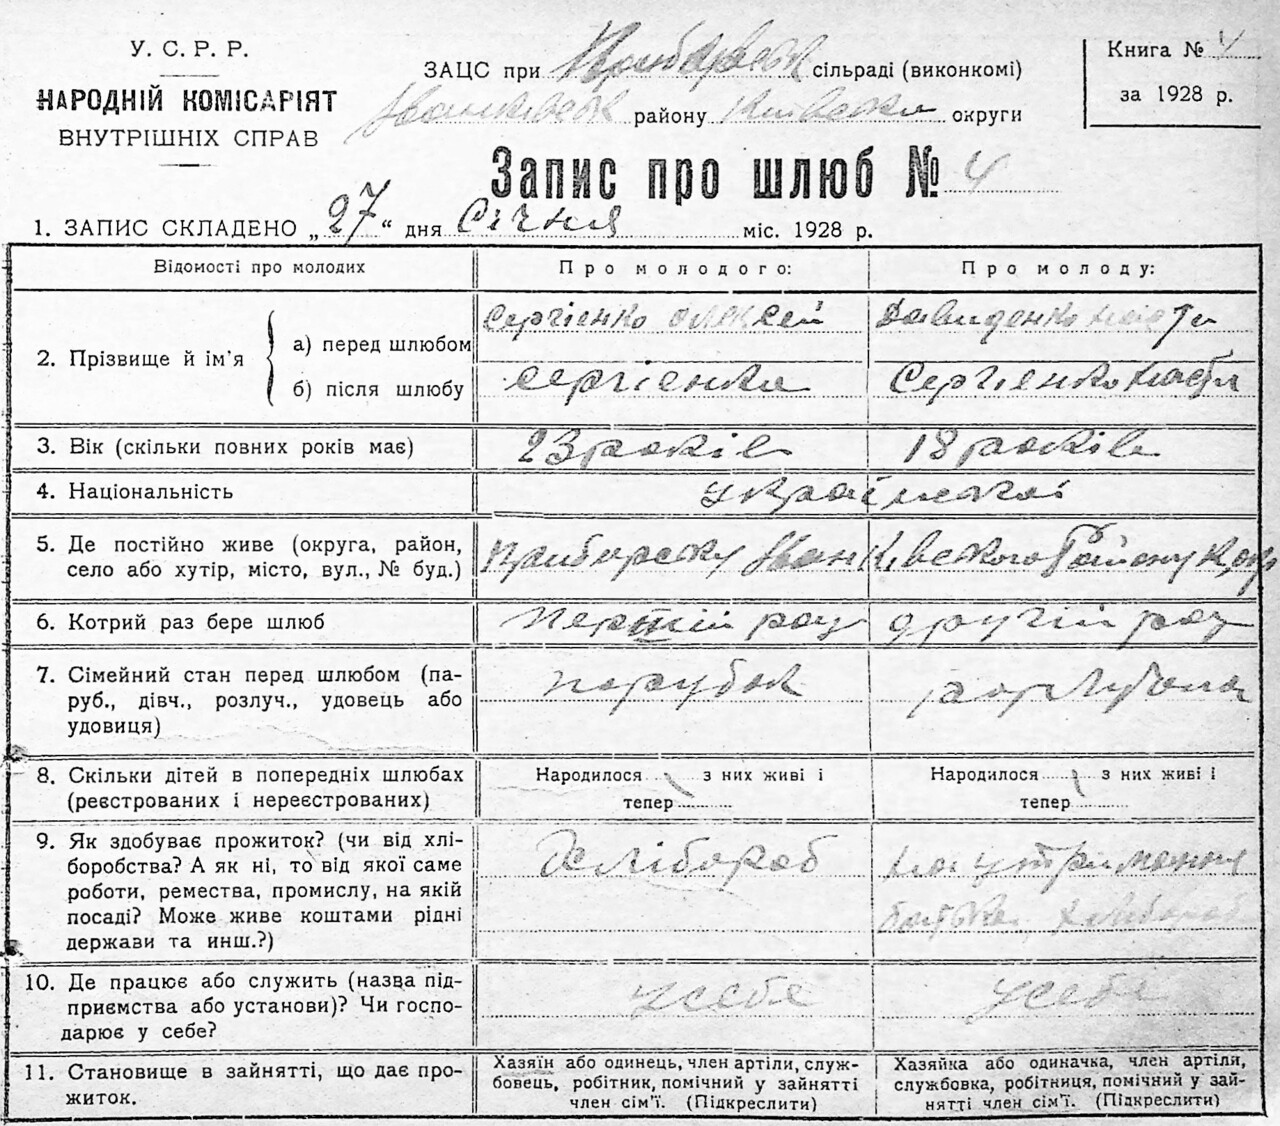 У. С. Р. Р.
НАРОДНІЙ КОМІСАРІЯТ
ВНУТРІШНІХ СПРАВ
ЗАЦС при Прибірській сільраді (виконкомі)
Іванківськ району Київськ округи
Книга № 4
за 1928 р.
Запис про шлюб № 4
1. ЗАПИС СКЛАДЕНО „27“ дня Січня міс. 1928 р.
Відомості про молодих Про молодого: Про молоду:
2. Прізвище й ім’я
а) перед шлюбом Сергієнко Олексей Давиденко Настя
б) після шлюбу Сергієнко Сергієнко Настя
3. Вік (скільки повних років має) 23 років 18 років
4. Національність
5. Де постійно живе (округа, район,
село або хутір, місто, вул., № буд.) Іванківського Району
6. Котрий раз бере шлюб Перший раз другій раз
7. Сімейний стан перед шлюбом (па-
руб., дівч., розлуч., удовець або
удовиця)
парубок
8. Скільки дітей в попередніх шлюбах
(реєстрованих і нереєстрованих)
Народилося з них живі і
тепер
Народилося з них живі і
тепер
9. Як здобуває прожиток? (чи від хлі-
боробства? А як ні, то від якої саме
роботи, ремества, промислу, на якій
посаді? Може живе коштами рідні
держави та инш.?)
Хлібороб
на утриманні
батька, хлібороб
10. Де працює або служить (назва під-
приємства або установи)? Чи госпо-
дарює у себе?
у себе у себе
11. Становище в зайнятті, що дає про-
житок.
Хазяїн або одинець, член артілі, служ-
бовець, робітник, помічний у зайнятті
член сім’ї. (Підкреслити)
Хазяйка або одиначка, член артіли,
службовка, робітниця, помічний у зай-
нятті член сім’ї. (Підкреслити)